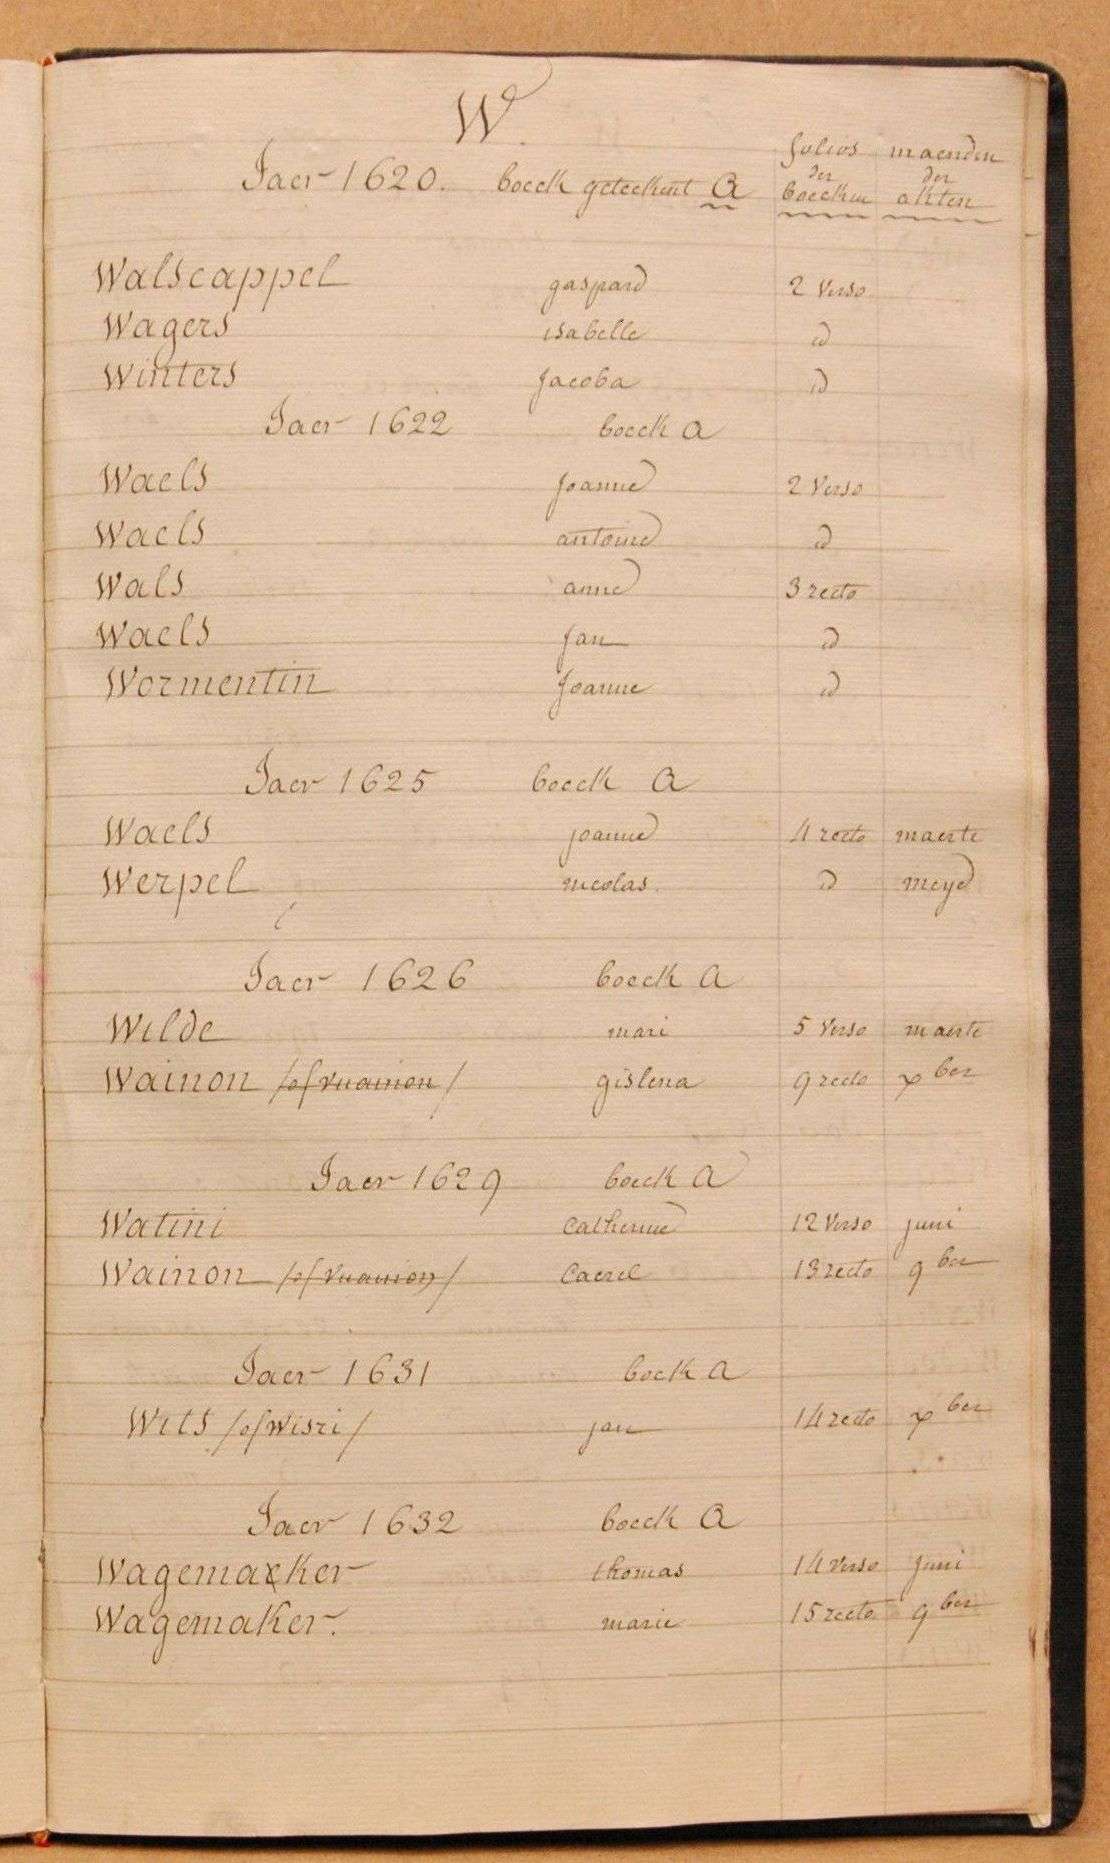 W.
Jaer 1620. boeck geteekent A folios der boecken maenden der akten
Walscappel gaspard 2 verso
Wagers isabelle id
Winters Jacoba id
Jaer 1622 boeck A
Waels Joanne 2 verso
Waels antoine id
Wals anne 3 recto
Waels Jan id
Wormentin Joanne id
Jaer 1625 boeck A
Waels joanne 4 recto maerte
Werpel nicolas id meye
Jaer 1626 boeck A
Wilde mari 5 verso maerte
Wainon /of vuainon/ gislena 9 recto xber
Jaer 1629 boeck A
Watini catherine 12 verso juni
Wainon /of vuainon/ Caerel 13 recto 9ber
Jaer 1631 boek A
Wits /of Wisri/ jan 14 recto xber
Jaer 1632 boeck A
Wagemacker thomas 14 verso Juni
Wagemaker. marie 15 recto 9ber